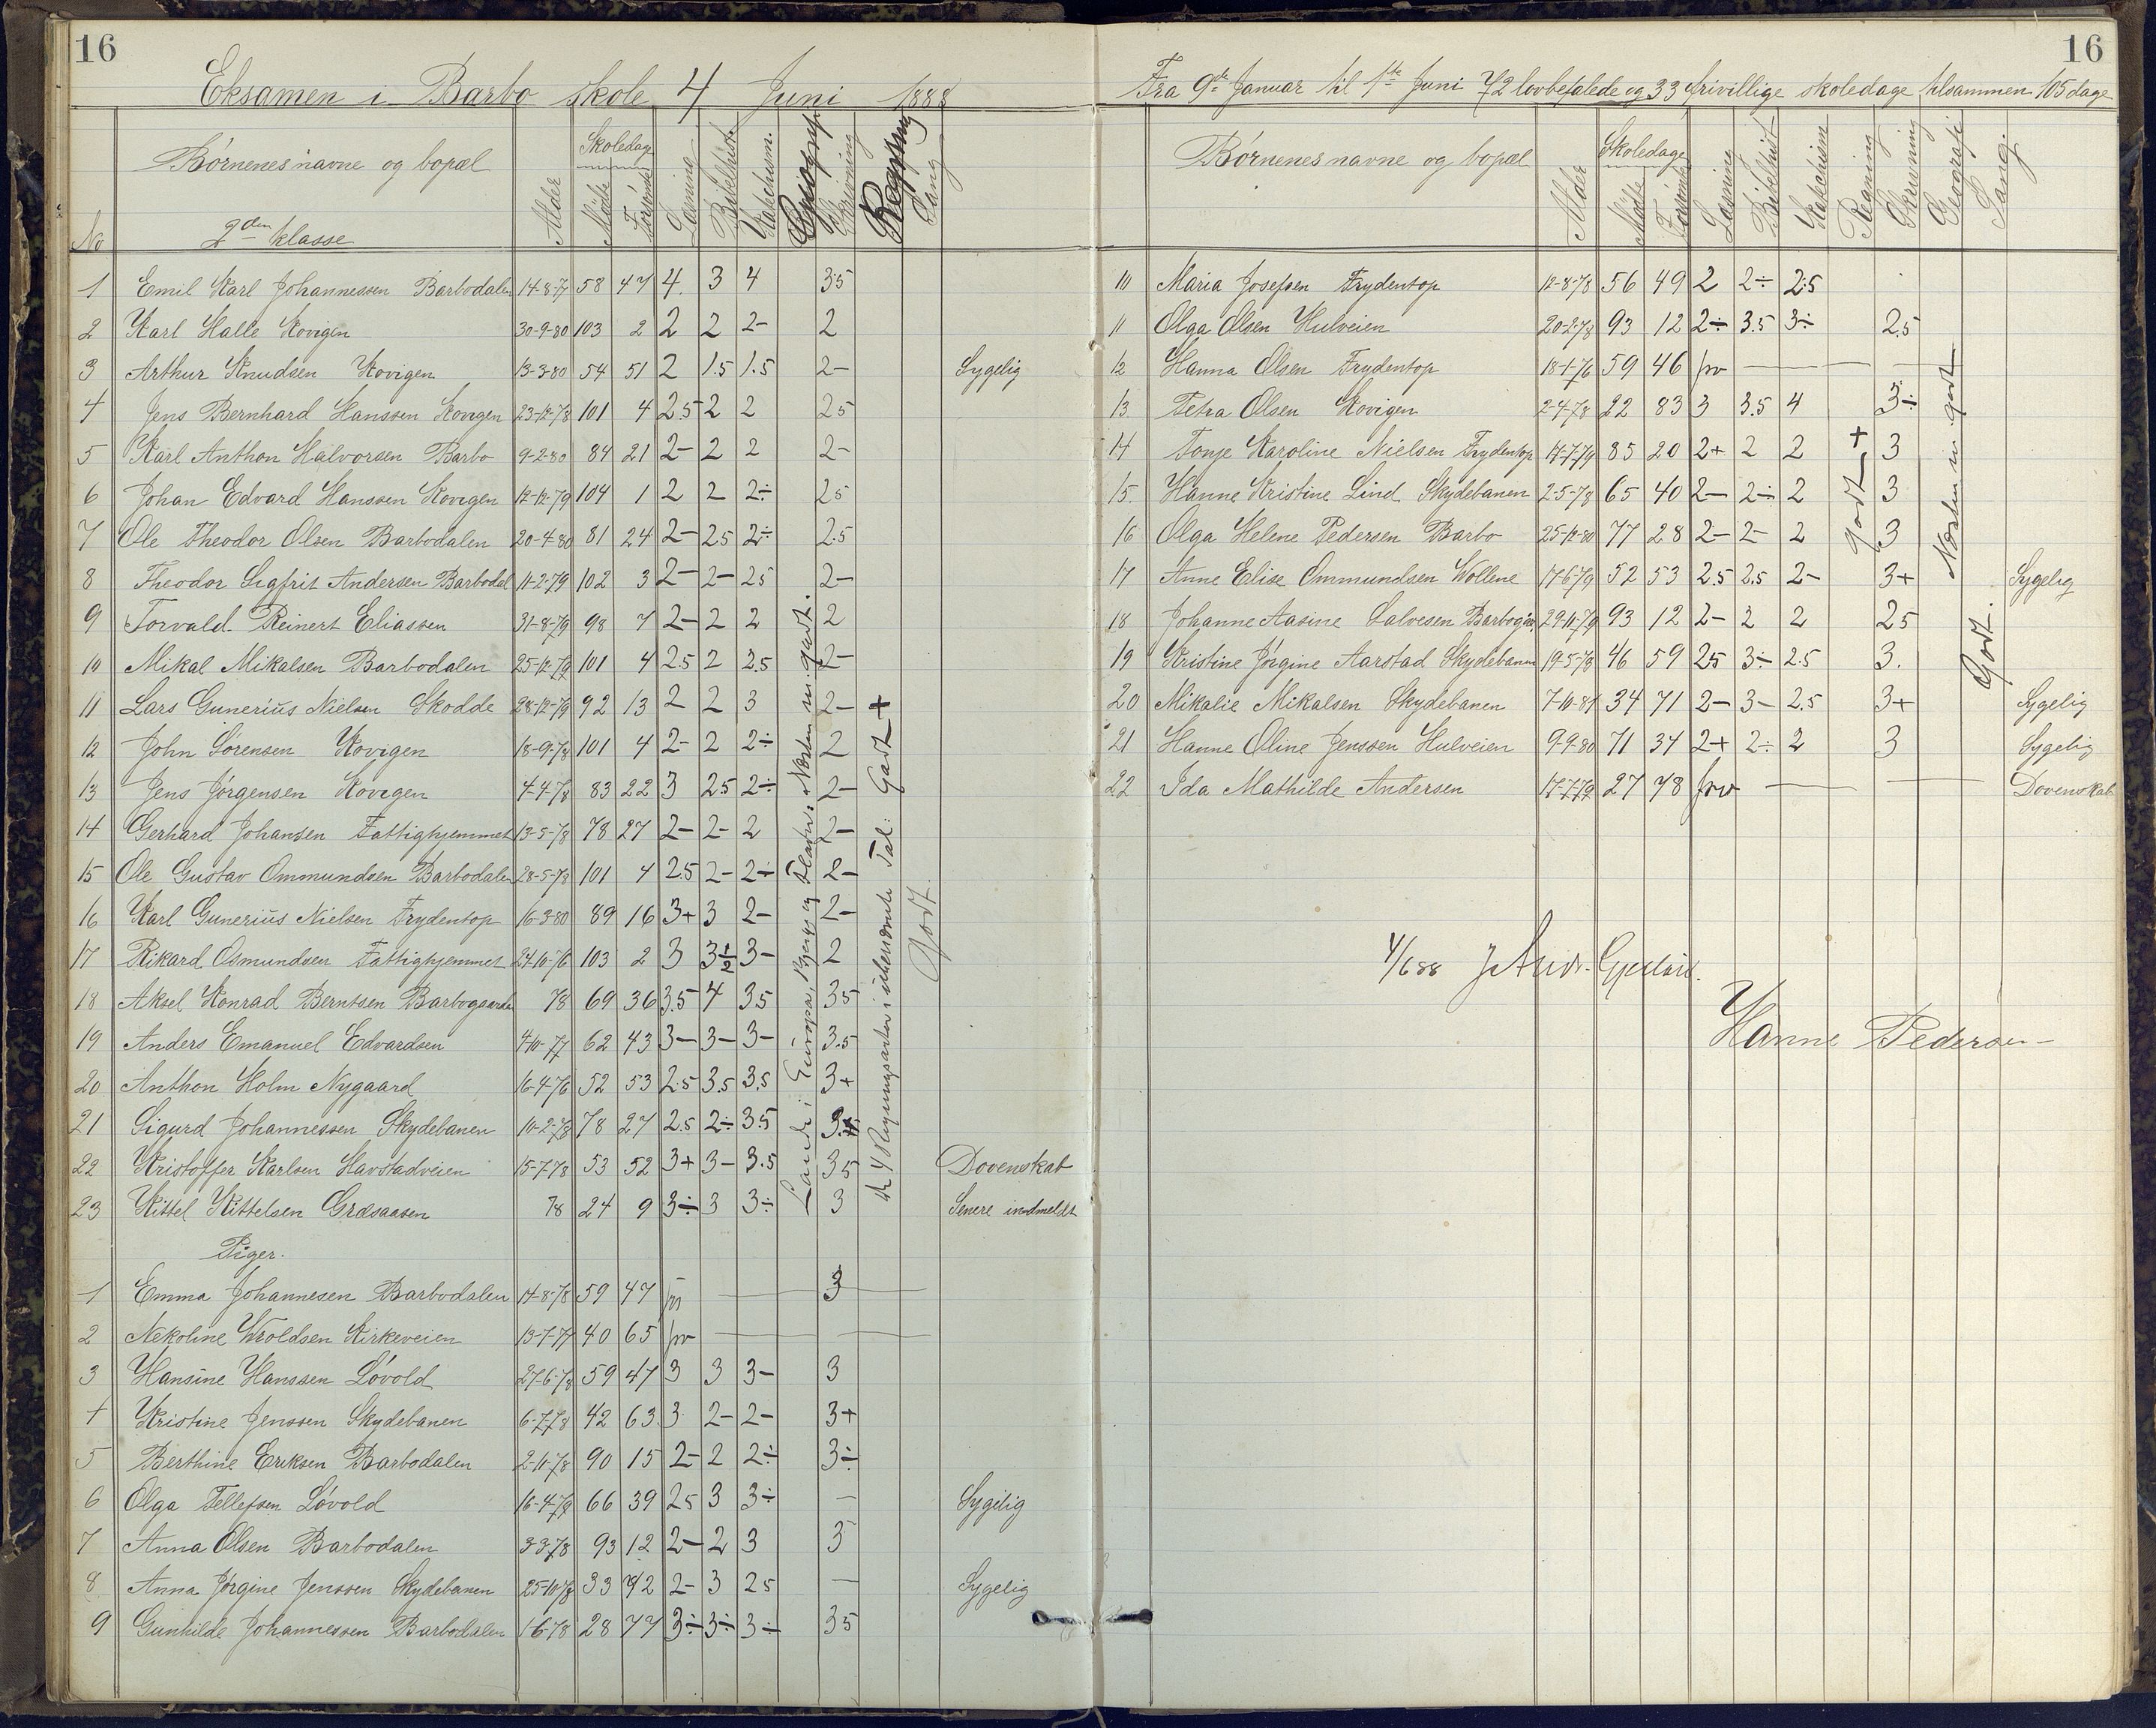 16
Eksamen i Barbo skole 4 Juni 1888
No Børnenes navne og bopæl Alder Skoledage Mødte Forsømte Læsning Bibelhist. Katechism. Geografi Skrivning Regning Sang
2den klasse
1 Emil Karl Johannessen Barbodalen 14-8-77 58 47 4. 3 4 3.5
2 Karl Halle Kovigen 30-9-80 103 2 2 2 2- 2
3 Arthur Knudsen Kovigen 13-3-80 54 51 2 1.5 1.5 2- Sygelig
4 Jens Bernhard Hanssen Kovigen 23-12-78 101 4 2.5 2 2 25
5 Karl Anthon Halvorsen Barbo 9-2-80 84 21 2- 2 2 2-
6 Johan Edvard Hanssen Kovigen 12-12-79 104 1 2 2 2÷ 25
7 Ole Theodor Olsen Barbodalen 20-4-80 81 24 2- 25 2÷ 2.5
8 Theodor Sigfrit Andersen Barbodal 11-2-79 102 3 2- 2- 25 2-
9 Torvald Reinert Eliassen 31-8-79 98 7 2- 2 2 2
10 Mikal Mikalsen Barbodalen 25-12-79 101 4 2.5 2 2.5 2-
11 Lars Gunerius Nielsen Skodde 28-12-79 92 13 2 2 3 2-
12 John Sørensen Kovigen 18-9-78 101 4 2- 2 2÷ 2
13 Jens Jørgensen Kovigen 4-4-78 83 22 3 2.5 2÷ 2-
14 Gerhard Johansen Fattighjemmet 13-5-78 78 27 2- 2- 2 2-
15 Ole Gustav Ommundsen Barbodalen 28-5-78 101 4 2.5 2- 2÷ 2-
16 Karl Gunerius Nielsen Frydentop 16-3-80 89 16 3+ 3 2- 2-
17 Rikard Osmundsen Fattighjemmet 24-10-76 103 2 3 3½ 3- 2
18 Aksel Konrad Berntsen Barbogaarden 78 69 36 3.5 4 35 35
19 Anders Emanuel Edvardsen 4-10-77 62 43 3- 3- 3- 3.5
20 Anthon Holm Nygaard 16-4-76 52 53 2.5 3.5 3.5 3+
21 Sigurd Johannessen Skydebanen 10-2-78 78 27 2.5 2÷ 3.5
22 Kristoffer Karlsen Havstadveien 15-7-78 53 52 3+ 3- 3.5 35 Dovenskab
23 Kittel Kittelsen Græsaasen 78 24 9 3÷ 3 3÷ 3 Senere indmeldt
Lande i Europa, Bjerge og Floder: Næsten m. godt.
de 4 Regningsarter i ubenævnte Tal: Godt +
Godt.
Piger.
1 Emma Johannesen Barbodalen 14-8-78 59 47 frv 3
2 Nekoline Woldsen Kirkeveien 13-7-77 40 65 frv
3 Hansine Hanssen Løvold 27-6-78 59 47 3 3 3- 3
4 Kristine Jenssen Skydebanen 6-7-78 42 63 3 2- 2- 3+
5 Berthine Eriksen Barbodalen 2-11-78 90 15 2- 2 2÷ 3÷
6 Olga Tellefsen Løvold 16-4-79 66 39 25 3 3÷ — Sygelig
7 Anna Olsen Barbodalen 3-3-78 93 12 2- 2 3 3
8 Anna Jørgine Jenssen Skydebanen 25-10-78 33 72 2- 3 25 — Sygelig
9 Gunhilde Johannessen Barbodalen 1-6-78 28 77 3÷ 3÷ 3÷ 35
16
Fra 9de Januar til 1ste Juni 72 lovbefalede og 33 frivillige skoledage tilsammen 105 dage
Børnenes navne og bopæl Alder Skoledage Mødte Forsømte Læsning Bibelhist Katechism Regning Skrivning Geografi Sang.
10 Maria Josefsen Frydentop 12-8-78 56 49 2 2÷ 2.5
11 Olga Olsen Hulveien 20-2-78 93 12 2÷ 3.5 3÷ 2.5
12 Hanna Olsen Frydentop 18-1-76 59 46 frv
13 Petra Olsen Kovigen 2-4-78 22 83 3 3.5 4 3÷
14 Tonje Karoline Nielsen Frydentop 17-7-79 85 20 2+ 2 2 3
15 Hanne Kristine Lind Skydebanen 2-5-78 65 40 2- 2÷ 2 3
16 Olga Helene Pedersen Barbo 25-12-80 77 28 2- 2- 2 3
17 Anne Elise Ommundsen Wollene 17-6-79 52 53 2.5 2.5 2- 3+ Sygelig
18 Johanne Aasine Salvesen Barbogrv. 29-11-79 93 12 2- 2 2 25
19 Kristine Jørgine Aarstad Skydebanen 19-5-78 46 59 25 3÷ 2.5 3.
20 Mikalie Mikalsen Skydebanen 7-10-81 34 71 2- 3- 2.5 3+ Sygelig
21 Hanne Oline Jenssen Hulveien 9-9-80 71 34 2+ 2÷ 2 3 Sygelig
22 Ida Mathilde Andersen 17-7-79 27 78 frv Dovenskab
godt +
Næsten m godt
Godt.
4/6 88 J Andr. Gjesløv.
Hanne Pedersen